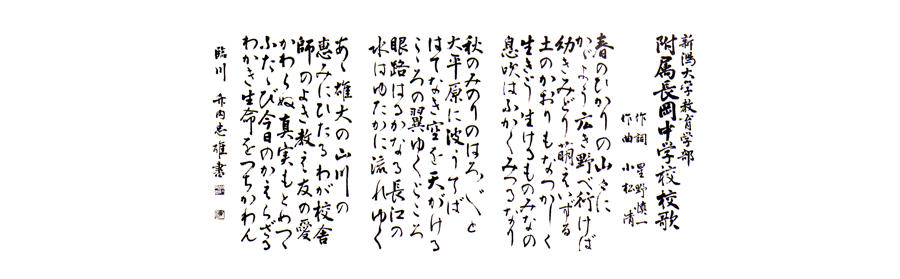 新潟大学教育学部
附属長岡中学校校歌
作詞 星野慎一
作曲 小松清
春のひかりの山々に
かげろう広き野べ行けば
幼きみどり萌えいずる
土のかおりもなつかしく
生きどう生けるものみなの
息吹はふかくみつるなり
秋のみのりのほのぼのと
大平原に波うてば
はてなき空を天がける
こころの翼ゆくところ
眼路はるかなる長江の
水はゆたかに流れゆく
あゝ雄大の山川の
恵みにひたるわが校舎
師のよき教え友の愛
かわらぬ真実もとめつつ
ふたゝび今日のかえらざる
わかき生命をつちかわん
臨川 赤内忠雄書